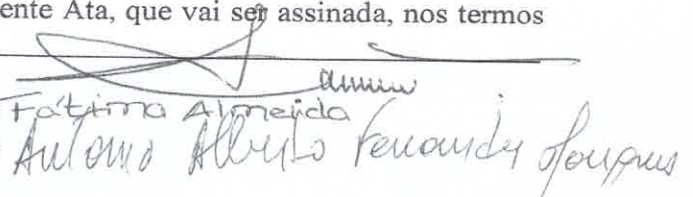 ente Ata, que vai ser assinada, nos termos
Fátima Almeida
António Alberto Fernandes